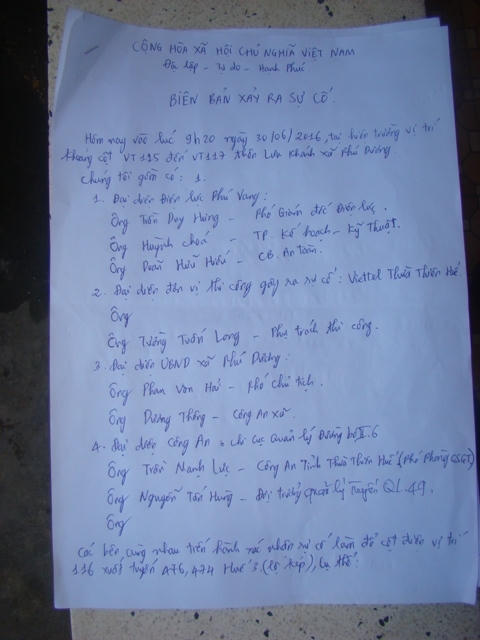 CỘNG HÒA XÃ HỘI CHỦ NGHĨA VIỆT NAM
Độc lập - Tự do - Hạnh Phúc
BIÊN BẢN XẢY RA SỰ CỐ.
Hôm nay vào lúc 9h20 ngày 30/06/2016, tại hiện trường vị trí
khoảng cột VT115 đến VT117 thôn Lưu Khánh xã Phú Dương.
Chúng tôi gồm có: 1.
1. Đại diện Điện lực Phú Vang:
Ông Trần Duy Hùng - Phó Giám đốc Điện lực.
Ông Huỳnh - TP. Kế hoạch - Kỹ Thuật.
Ông Đoàn Hữu Hiếu - CB. An toàn.
2. Đại diện đơn vị thi công gây ra sự cố: Viettel Thừa Thiên Huế
Ông
Ông Tưởng Tuấn Long - Phụ trách thi công.
3. Đại diện UBND xã Phú Dương:
Ông Phan Văn Hải - Phó chủ tịch.
Ông Dương Thông - Công An xã.
4. Đại diện Công An & chi cục Quản lý Đường bộ II.6
Ông Trần Mạnh Lực - Công An Tỉnh Thừa Thiên Huế (Phó Phòng CSGT)
Ông Nguyễn Tấn Hưng - Đội quản lý tuyến QL.49.
Ông
Các bên cùng nhau tiến hành xác nhận sự cố làm đổ cột điện vị trí
116 xuất tuyến 476, 474 Huế 3 (lộ kép), cụ thể: